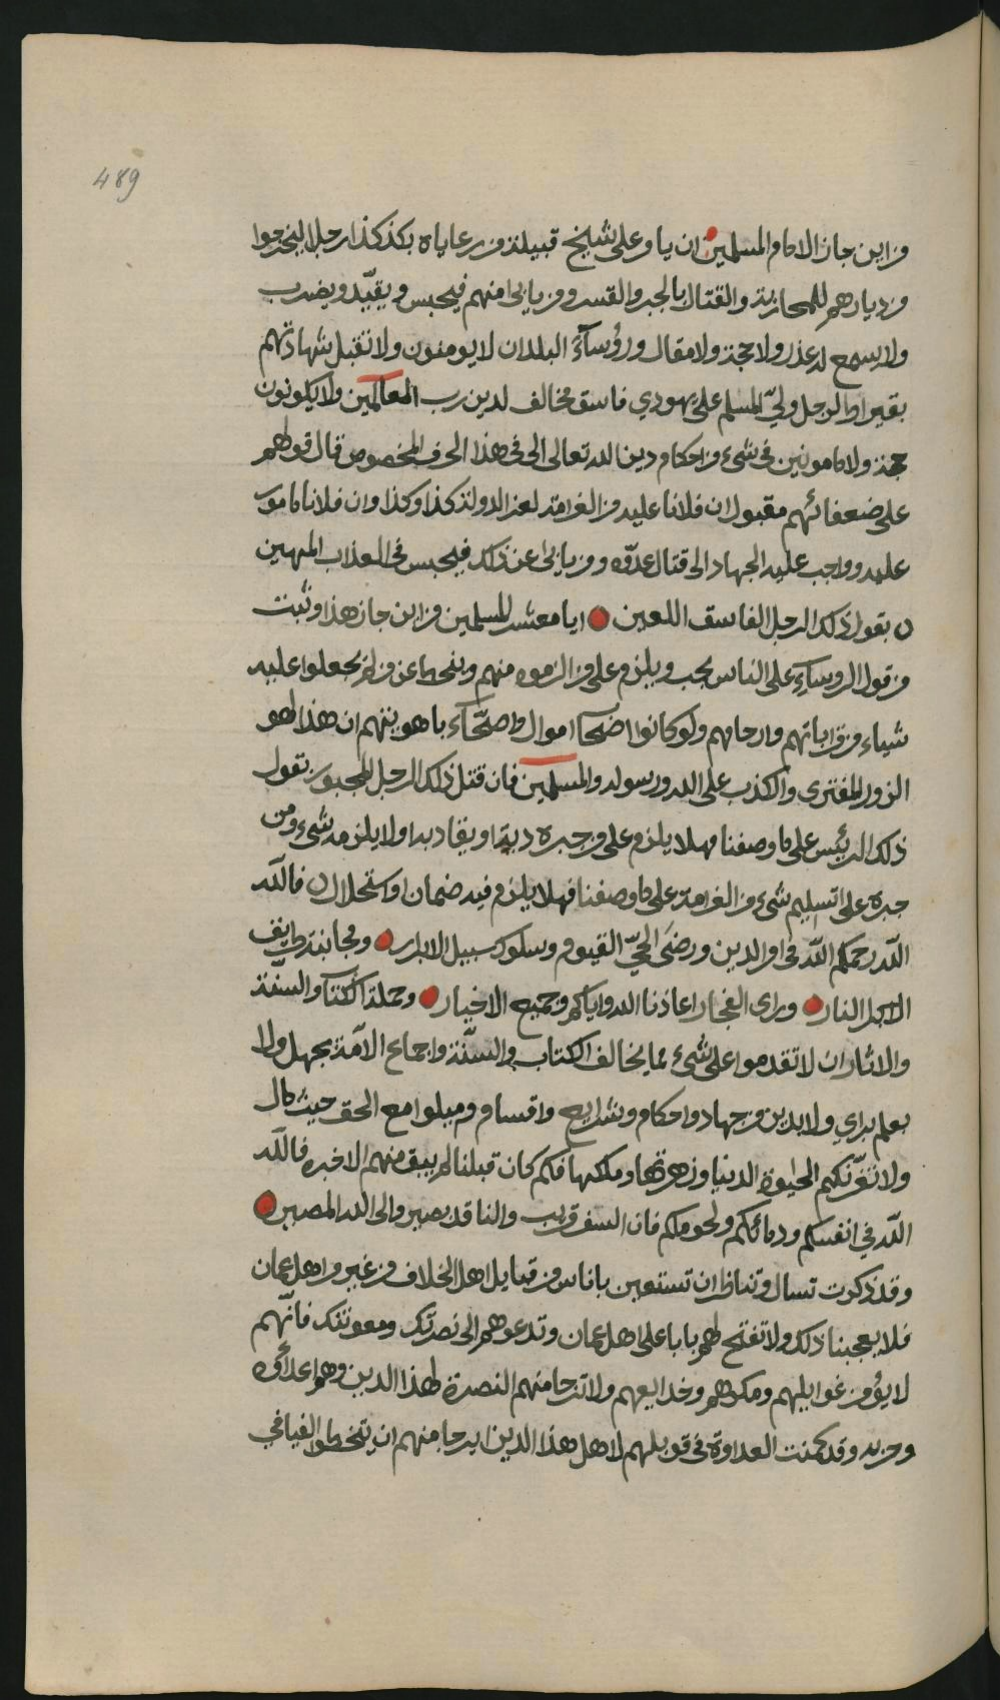 489
من اين جاز الامام المسلمين ان يامر على شيخ قبيلة من رعاياه بكذكذا رجلا ليخرجوا
من ديارهم للمحاربة والقتال بالجبر والقسر ومن يابى منهم فيحبس ويقيّد ويضرب
ولا يسمع له عذر ولا حجة ولا مقال ورؤسآء البلدان لا يومنون ولا تقبل شهادتهم
بقيراط لرجل وليّ المسلم على يهودي فاسق مخالف لدين رب العالمين ولا يكونون
حجة ولا مامونين في شيء من احكام دين الله تعالى الى في هذا الحرف المخصوص قال قولهم
على ضعفائهم مقبول ان فلانا عليه من الغرامة لعز الدولة كذا وكذا وان فلانا مامور
عليه وواجب عليه الجهاد الى قتال عدوّه ومن يابى عن ذلك فيحبس في العذاب المهين
ن بقول ذلك الرجل الفاسق اللعين ايا معشر المسلمين من اين جاز هذا وثبت
من قول الروساء على الناس يجب ويلزم على من الزموه منهم وينحط عن من لم يجعلوا عليه
شياء من قراباتهم وارحامهم ولو كانوا اضحا اموال واصحّآء باهويتهم ان هذا لهو
الزور المفترى والكذب على الله ورسوله والمسلمين فان قتل ذلك الرجل المجبور بقول
ذلك الرئيس على ما وصفنا فهلا يلزم على من جبره دية او يقاد به او لا يلزمه شيء ومن
جبره على تسليم شيء من الغرامة على ما وصفنا فهلا يلزم فيه ضمان او استحلال ن فالله
الله رحمكم الله في امر الدين ورضى الحيّ القيوم وسلوك سبيل الابرار ومجانبة طرايق
النار وراى الفجار اعاذنا الله واياكم وجميع الاخيار وحملة الكتاب والسنّة
والاثار ان لا تقدموا على شيء مما يخالف الكتاب والسنّة واجماع الامّة بجهل ولا
بعلم براي ولا بدين من جهاد واحكام وشرايع واقسام وميلوا مع الحق حيث مال
ولا تغرّنكم الحيوة الدنيا وزهرتها وملكها فكم كان قبلنا لم يبق منهم الا خبره فالله
الله في انفسكم ودمائكم ولحومكم فان السفر قريب والناقد بصير والى الله المصير
وقد ذكرت تسال وتناظر ان تستعين باناس من قبايل اهل الخلاف من غير اهل عمان
فلا يعجبنا ذلك ولا تفتح لهم بابا على اهل عمان وتدعوهم الى نصرتك ومعونتك فانهم
لا يؤمن غوايلهم ومكرهم وخدايعهم ولا ترجا منهم النصرة لهذا الدين وهم اعداؤه
وحربه وقد كمنت العداوة في قوبلهم لاهل هذا الدين ايرجا منهم ان يتخطوا الفيافي